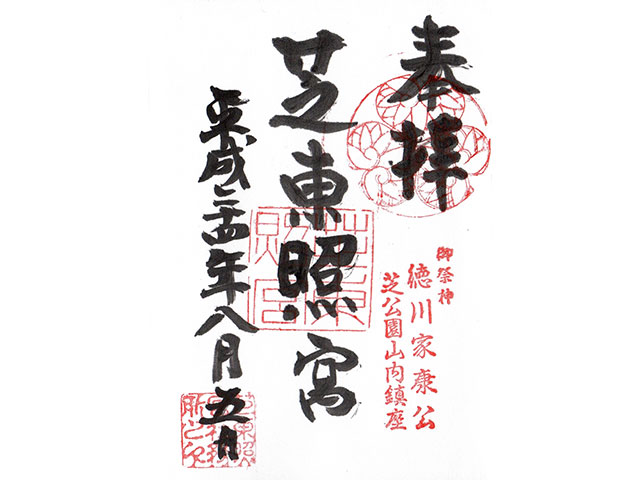 奉拝
御祭神
徳川家康公
芝公園山内鎮座
芝東照宮
平成二十四年八月五日